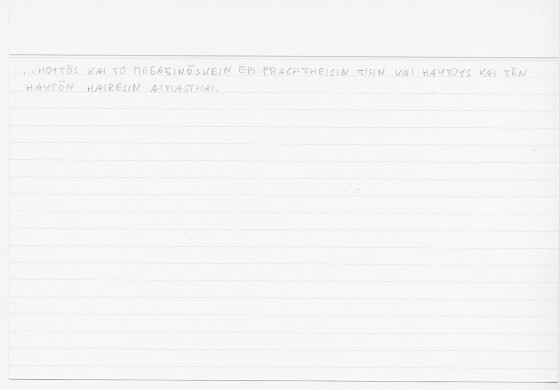 ...HOUTŌS KAI TO METAGINŌSKEIN EPI PRACHTHEISIN TISIN KAI HAUTOUS KAI TĒN
HAUTŌN HAIRESIN AITIASTHAI.